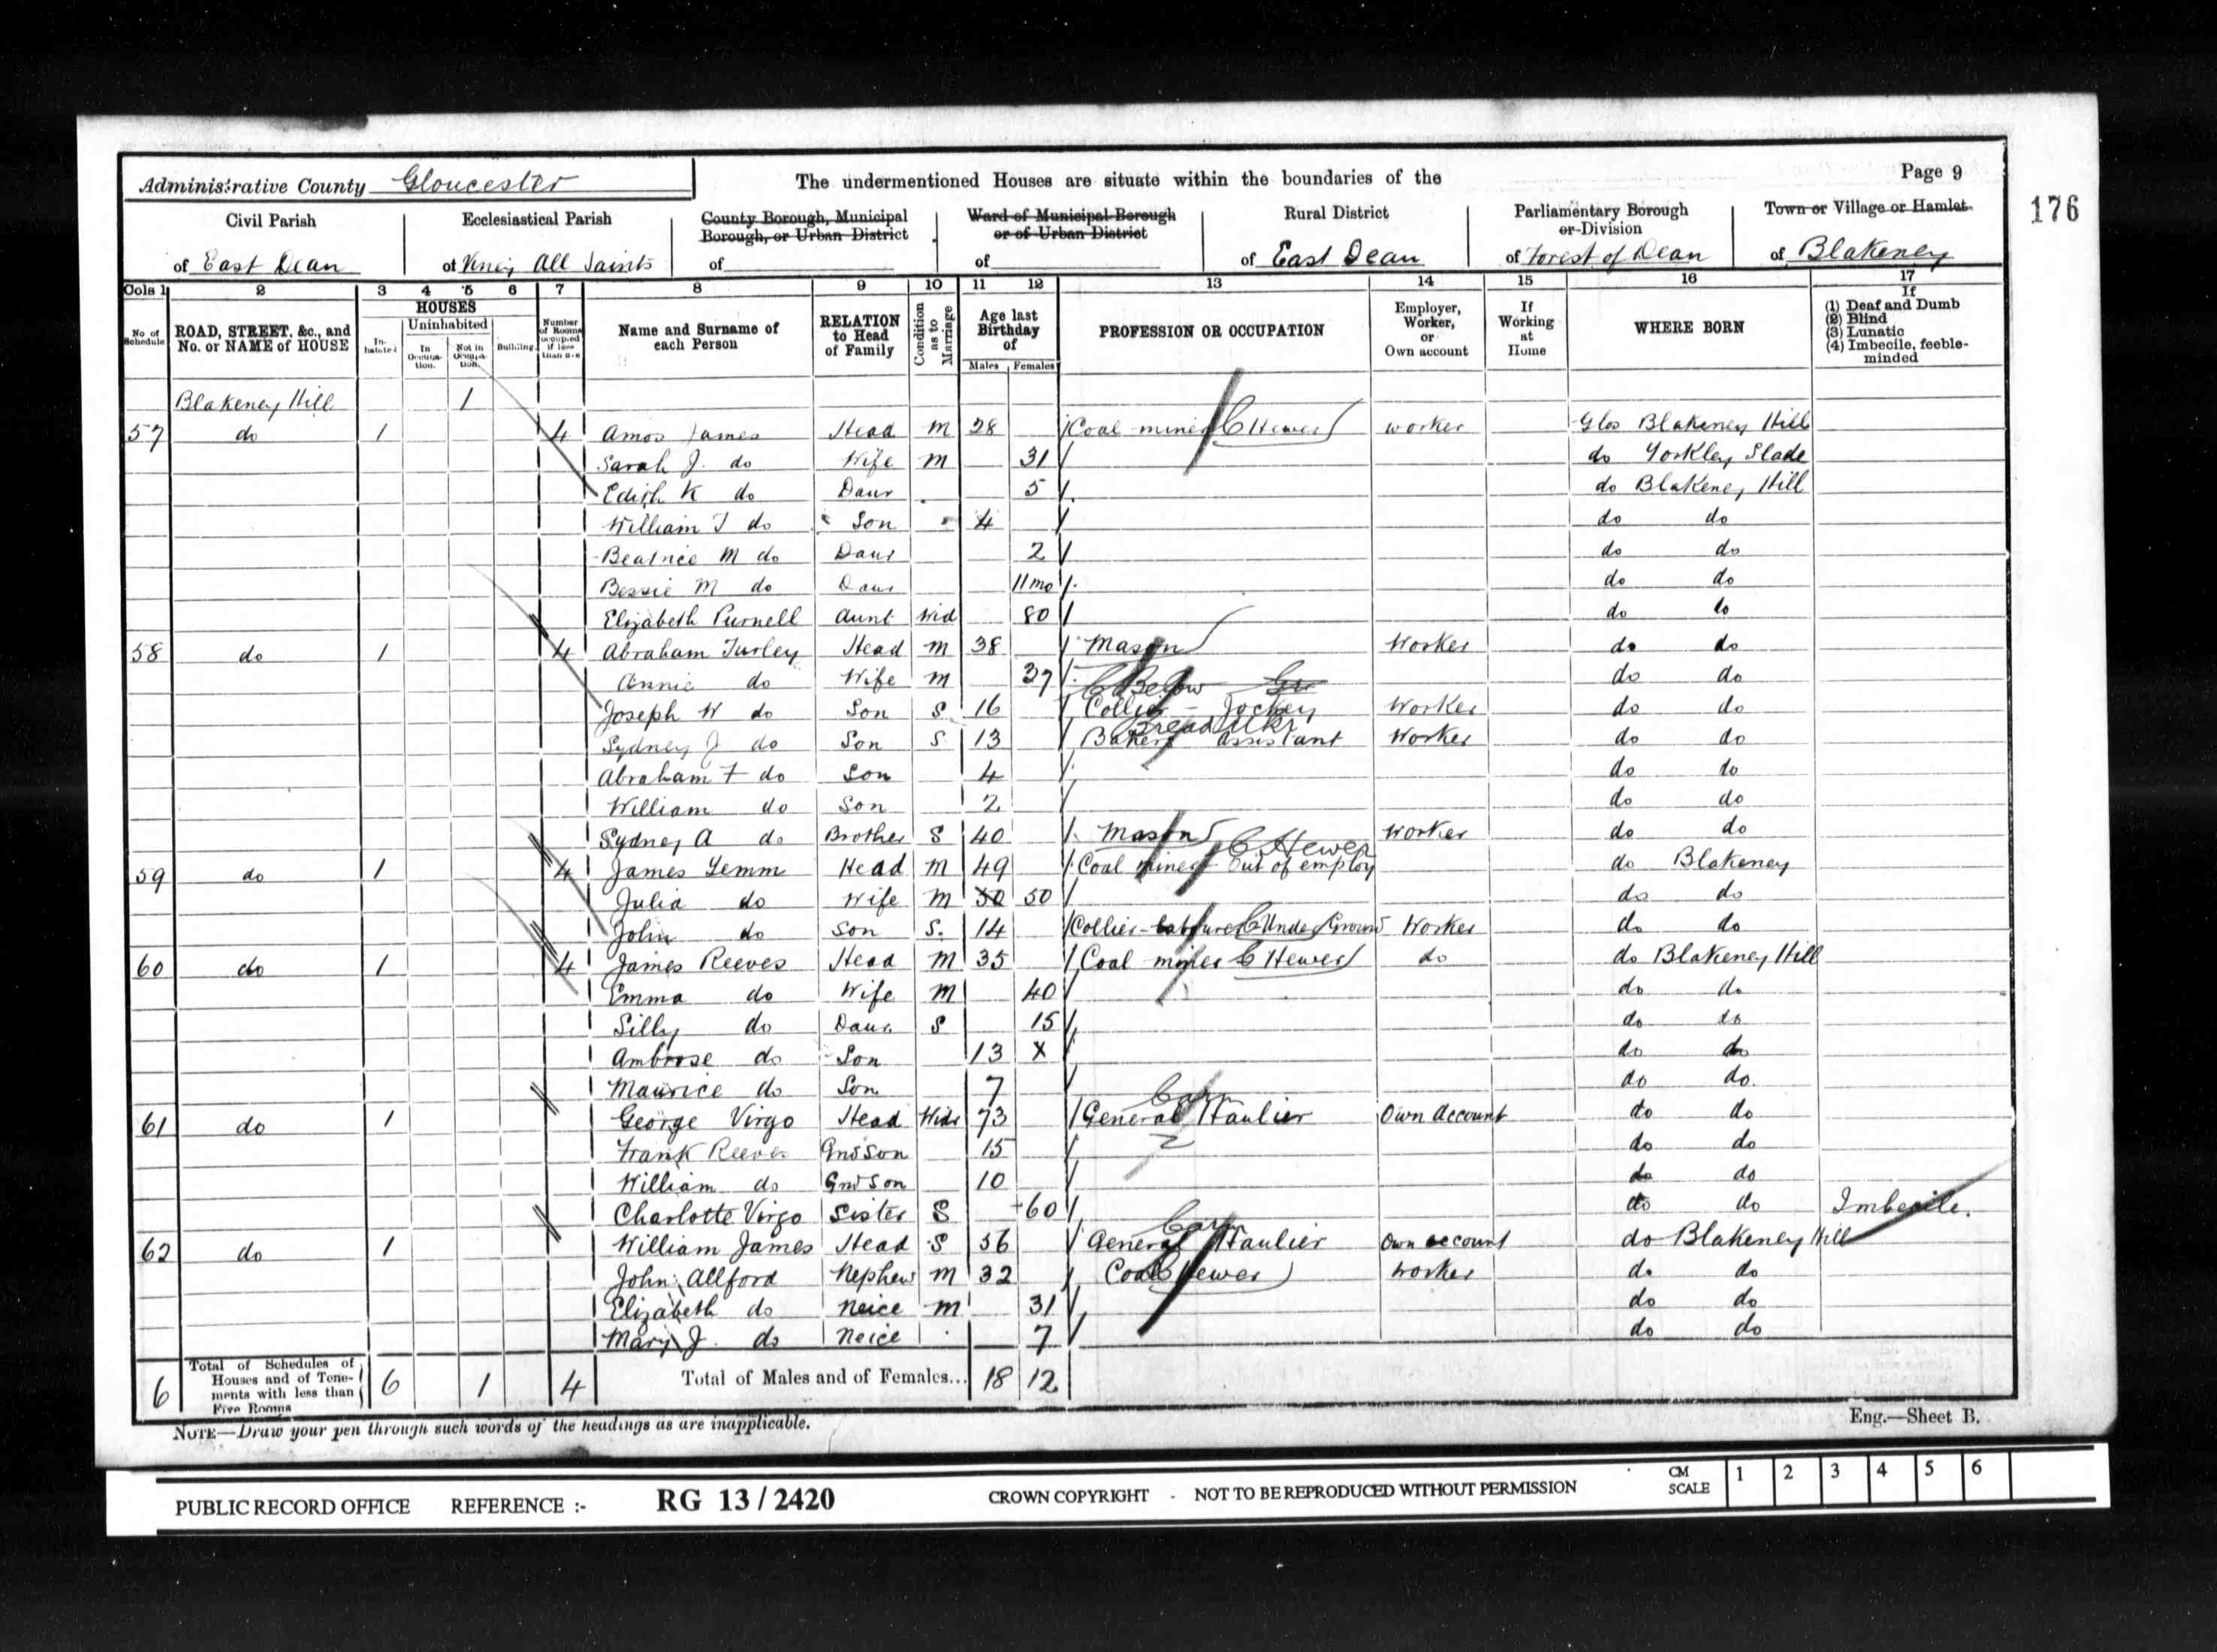 Administrative County Gloucester
The undermentioned Houses are situate within the boundaries of the
Page 9
176
Civil Parish
of East Dean
Ecclesiastical Parish
of Viney All Saints
County Borough, Municipal Borough, or Urban District
of
Ward of Municipal Borough or of Urban District
of
Rural District
of East Dean
Parliamentary Borough or Division
of Forest of Dean
Town or Village or Hamlet
of Blakeney
Cols 1 2 3 4 5 6 7 8 9 10 11 12 13 14 15 16 17
No of Schedule
ROAD, STREET, &c., and No. or NAME of HOUSE
HOUSES
In-habited
Uninhabited
In Occupa-tion.
Not in Occupa-tion.
Building.
Number of Rooms occupied if less than five
Name and Surname of each Person
RELATION to Head of Family
Condition as to Marriage
Age last Birthday of
Males Females
PROFESSION OR OCCUPATION
Employer, Worker, or Own account
If Working at Home
WHERE BORN
If
(1) Deaf and Dumb
(2) Blind
(3) Lunatic
(4) Imbecile, feeble-minded
Blakeney Hill 1
57 do 1 4 Amos James Head M 28 Coal miner Hewer worker Glos Blakeney Hill
Sarah J. do Wife M 31 do Yorkley Slade
Edith K do Daur 5 do Blakeney Hill
William J do Son 4 do do
Beatrice M do Daur 2 do do
Bessie M do Daur 11mo do do
Elizabeth Purnell Aunt Wid 80 do do
58 do 1 4 Abraham Turley Head M 38 Mason Worker do do
Annie do Wife M 37 do do
Below
Joseph W do Son S 16 Collier - Jockey Worker do do
Bread
Sydney J do Son S 13 Bakers assistant Worker do do
Abraham F do Son 4 do do
William do Son 2 do do
Sydney A do Brother S 40 Mason Worker do do
C Hewer
59 do 1 4 James Lemm Head M 49 Coal miner Out of employ do Blakeney
Julia do Wife M 50 50 do do
John do Son S. 14 Collier - labourer Under Ground Worker do do
60 do 1 4 James Reeves Head M 35 Coal miner C Hewer do do Blakeney Hill
Emma do Wife M 40 do do
Lilly do Daur S 15 do do
Ambrose do Son 13 X do do
Maurice do Son 7 do do
61 do 1 George Virgo Head Widr 73 General Haulier Own Account do do
Frank Reeves GndSon 15 do do
William do Gnd Son 10 do do
Charlotte Virgo Sister S 60 do do Imbecile.
62 do 1 William James Head S 56 General Haulier Own account do Blakeney Hill
John Allford Nephew M 32 Coal Hewer Worker do do
Elizabeth do Neice M 31 do do
Mary J. do Neice 7 do do
6 Total of Schedules of Houses and of Tene-ments with less than Five Rooms 6 1 4 Total of Males and of Females... 18 12
NOTE—Draw your pen through such words of the headings as are inapplicable.
Eng.—Sheet B.
PUBLIC RECORD OFFICE REFERENCE :- RG 13 / 2420 CROWN COPYRIGHT - NOT TO BE REPRODUCED WITHOUT PERMISSION CM SCALE 1 2 3 4 5 6